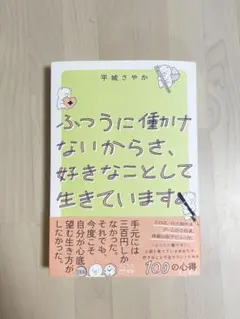 平城さやか
ふつうに働け
ないからさ、
好きなことして
生きています。
手元には
三百円しか
なかった。
それでも
今度こそ
自分が心底
望む生き方が
したかった。
100の心得